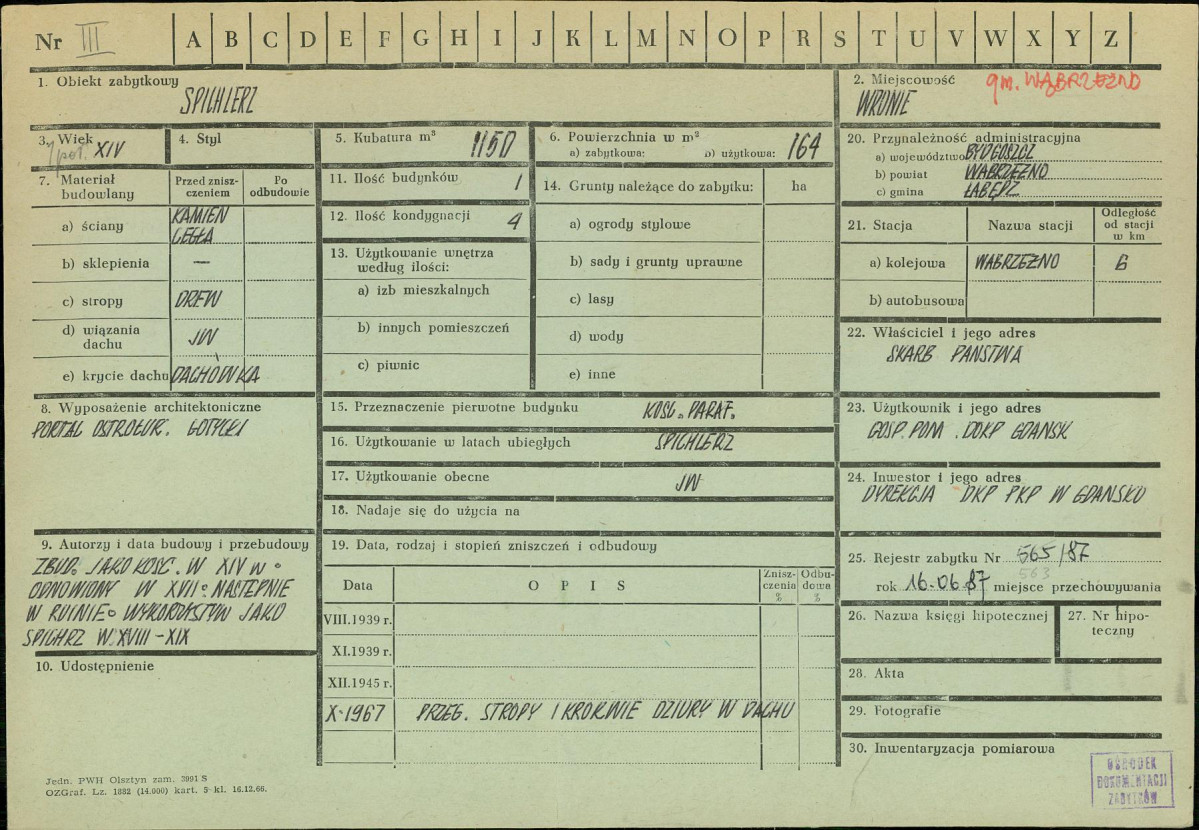 Nr III A B C D E F G H I J K L M N O P R S T U V W X Y Z
1. Obiekt zabytkowy
SPICHLERZ
2. Miejscowość gm. WĄBRZEŹNO
WRONIE
3. Wiek
1 poł. XIV
4. Styl
5. Kubatura m³ 1150
6. Powierzchnia w m²
a) zabytkowa: b) użytkowa: 164
7. Materiał budowlany
Przed zniszczeniem
Po odbudowie
a) ściany KAMIEŃ
CEGŁA
b) sklepienia —
c) stropy DREW
d) wiązania dachu JW
e) krycie dachu DACHÓWKA
11. Ilość budynków 1
12. Ilość kondygnacji 4
13. Użytkowanie wnętrza
według ilości:
a) izb mieszkalnych
b) innych pomieszczeń
c) piwnic
14. Grunty należące do zabytku: ha
a) ogrody stylowe
b) sady i grunty uprawne
c) lasy
d) wody
e) inne
20. Przynależność administracyjna
a) województwo BYDGOSZCZ
b) powiat WĄBRZEŹNO
c) gmina ŁABĘDŹ
21. Stacja Nazwa stacji Odległość
od stacji
w km
a) kolejowa WĄBRZEŹNO 6
b) autobusowa
22. Właściciel i jego adres
SKARB PAŃSTWA
8. Wyposażenie architektoniczne
PORTAL OSTROŁUK. GOTYCKI
15. Przeznaczenie pierwotne budynku KOŚC. PARAF.
16. Użytkowanie w latach ubiegłych SPICHLERZ
17. Użytkowanie obecne JW
18. Nadaje się do użycia na
23. Użytkownik i jego adres
GOSP. POM. DOKP GDAŃSK
24. Inwestor i jego adres
DYREKCJA DKP PKP W GDAŃSKU
9. Autorzy i data budowy i przebudowy
ZBUD. JAKO KOŚC. W XIV W.
ODNOWIONY W XVII. NASTĘPNIE
W RUINIE. WYKORZYSTYW JAKO
SPICHRZ W. XVIII-XIX
10. Udostępnienie
19. Data, rodzaj i stopień zniszczeń i odbudowy
Data OPIS Zniszczenia % Odbudowa %
VIII.1939 r.
XI.1939 r.
XII.1945 r.
X-1967 PRZEG. STROPY I KROKWIE DZIURY W DACHU
25. Rejestr zabytku Nr 565/87
563
rok 16.06.87 miejsce przechowywania
26. Nazwa księgi hipotecznej
27. Nr hipoteczny
28. Akta
29. Fotografie
30. Inwentaryzacja pomiarowa
OŚRODEK
DOKUMENTACJI
ZABYTKÓW
Jedn. PWH Olsztyn zam. 3991 S
OZGraf. Lz. 1882 (14.000) kart. 5 kl. 16.12.66.